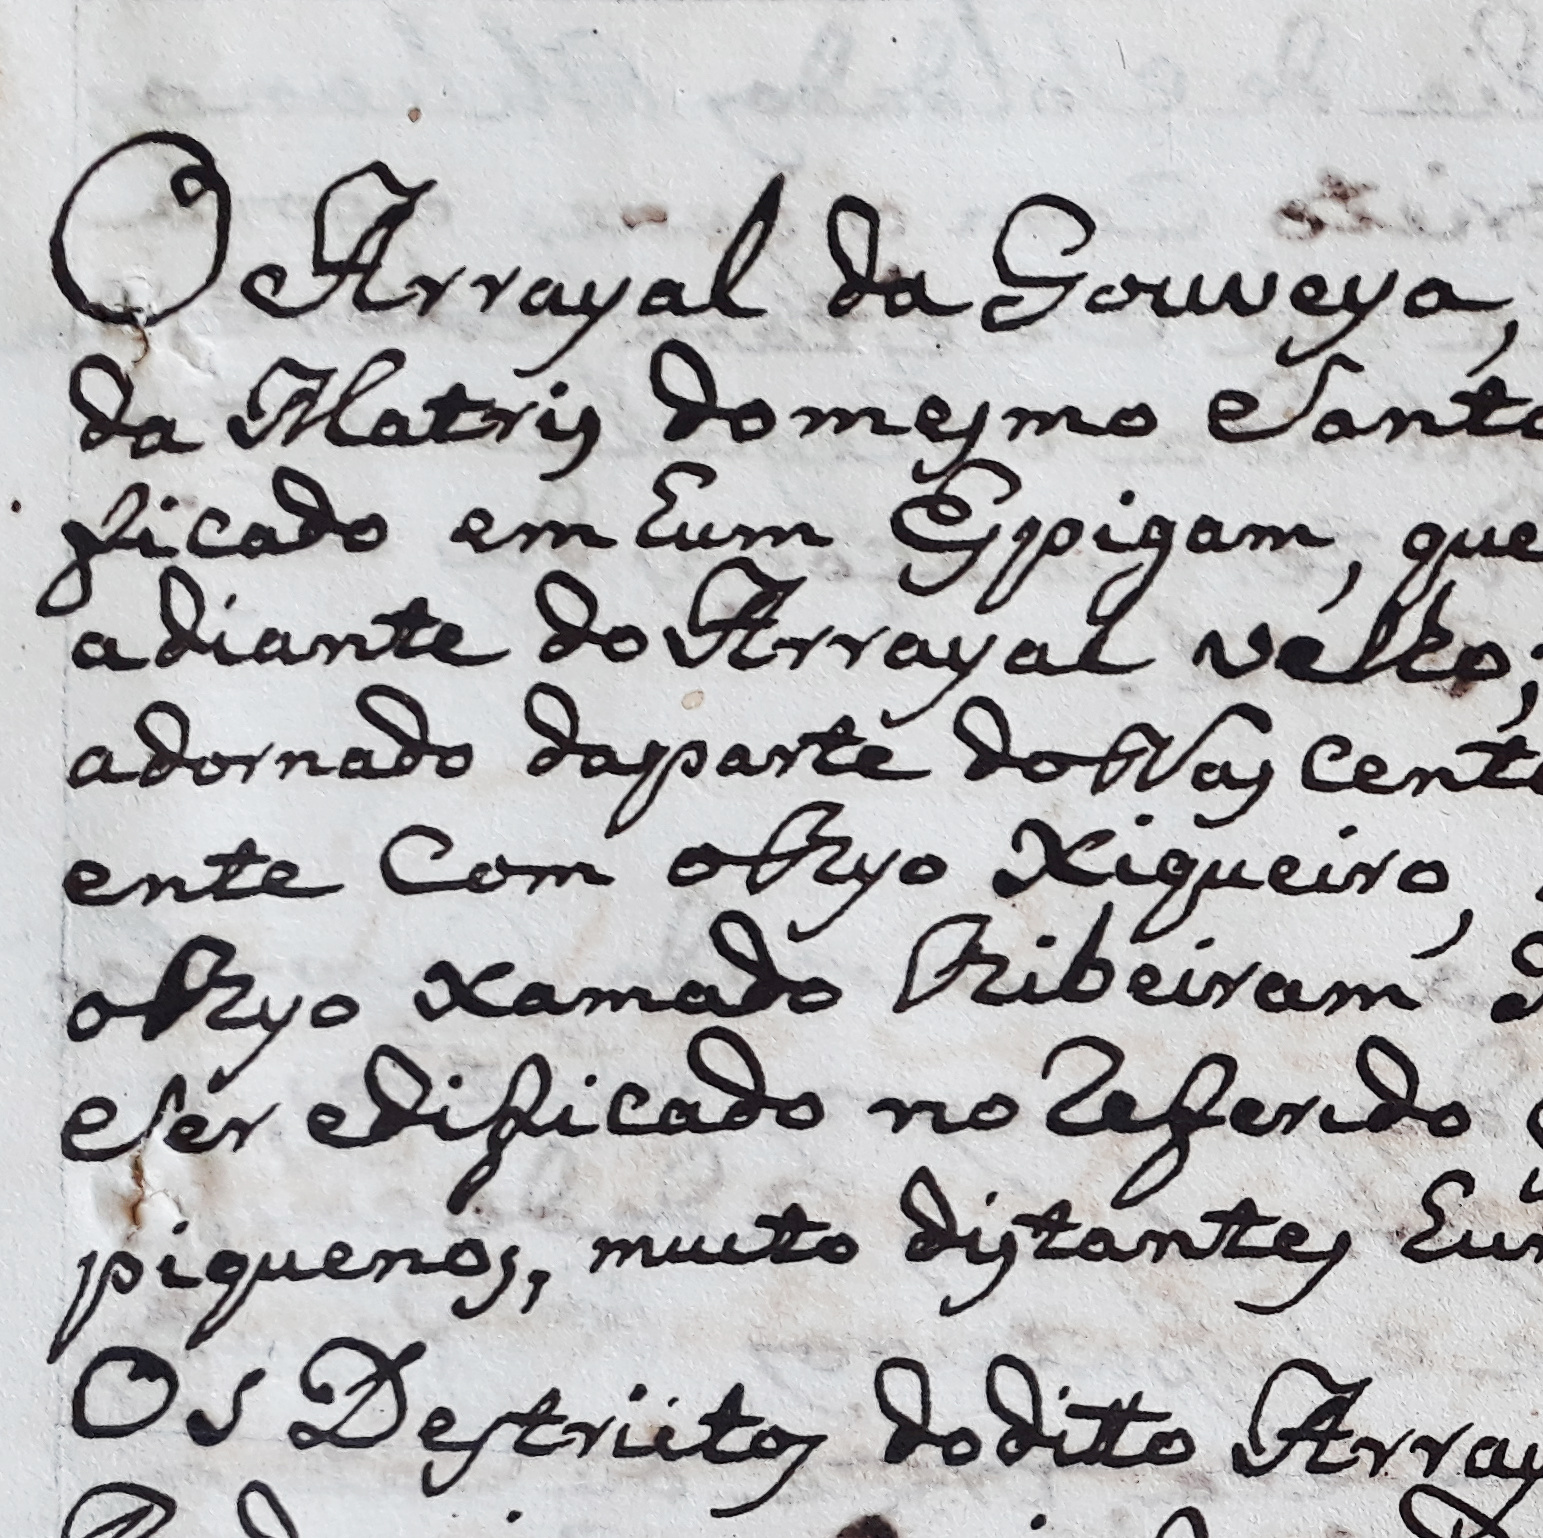 O Arrayal da Gouveya,
da Matris do mesmo Santo
ficado em hum Espigam, que
adiante do Arrayal velho;
adornado da parte do Nascente
ente Com o Ryo Xiqueiro,
o Ryo xamado Ribeiram
e Ser edificado no Referido
piquenos, muito distantes hum
Os Destrictos do ditto Array